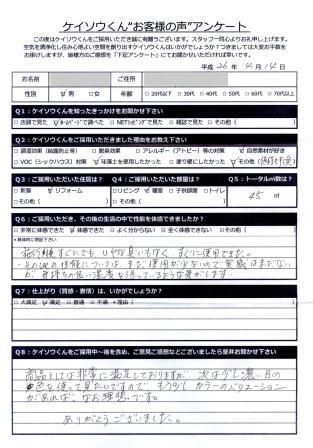 ケイソウくん"お客様の声"アンケート
この度はケイソウくんをご採用いただき誠に有難うございます。スタッフ一同心よりお礼申し上げます。
空気を清浄化し住み心地よい空間を創り出すケイソウくんはいかがでしょうか？つきましては大変お手数を
お掛けしますが、皆様方のご感想を「下記アンケート」にてお聞かせいただければ幸いです。
平成 26年 4月 14日
お名前 ご住所
性別 ☑男 □女 年齢 □20代以下 □30代 □40代 □50代 □60代 □70代以上
Q1：ケイソウくんを知ったきっかけをお聞かせ下さい
□店頭で見た ☑ホームページで調べた □NETショップで見た □雑誌で見た □その他（ ）
Q2：ケイソウくんをご採用いただきました理由をお教え下さい
□調湿効果（結露防止等） □脱臭効果 □アレルギー（アトピー）等の対策 □自然素材が好き
□VOC（シックハウス）対策 ☑珪藻土を使用したかった □塗り壁にしたかった ☑その他（ ）
Q3：ご採用いただいた住居は？ Q4：ご採用いただいた部屋は？ Q5：トータル㎡数は？
□新築 ☑リフォーム □リビング ☑寝室 □子供部屋 □トイレ 45 ㎡
□その他（ ） □その他（ ）
Q6：ご採用いただき、その後の生活の中で性能を体感できましたか？
□非常に体感できた ☑体感できた □よく分からない □全く体感できない □その他（ ）
★具体的に明記下さい
・施行後すぐにでも いやな臭いもなく すぐに使用できた。
・その他の性能については、まだ使用が少ないので実感はまだない
が、気持ちの良い湿度を保っているような気がします。
Q7：仕上がり（質感・表情）は、いかがでしょうか？
□大満足 ☑満足 □普通 □不満 ★理由（ ）
Q8：ケイソウくんをご採用中～後を含め、ご意見ご感想などございましたら是非お聞かせ下さい
商品としては非常に満足しておりますが、次は少し濃い目の
色を使って見たいですので もう少し カラーのバリエーション
があれば、なお理想です。
ありがとうございました。